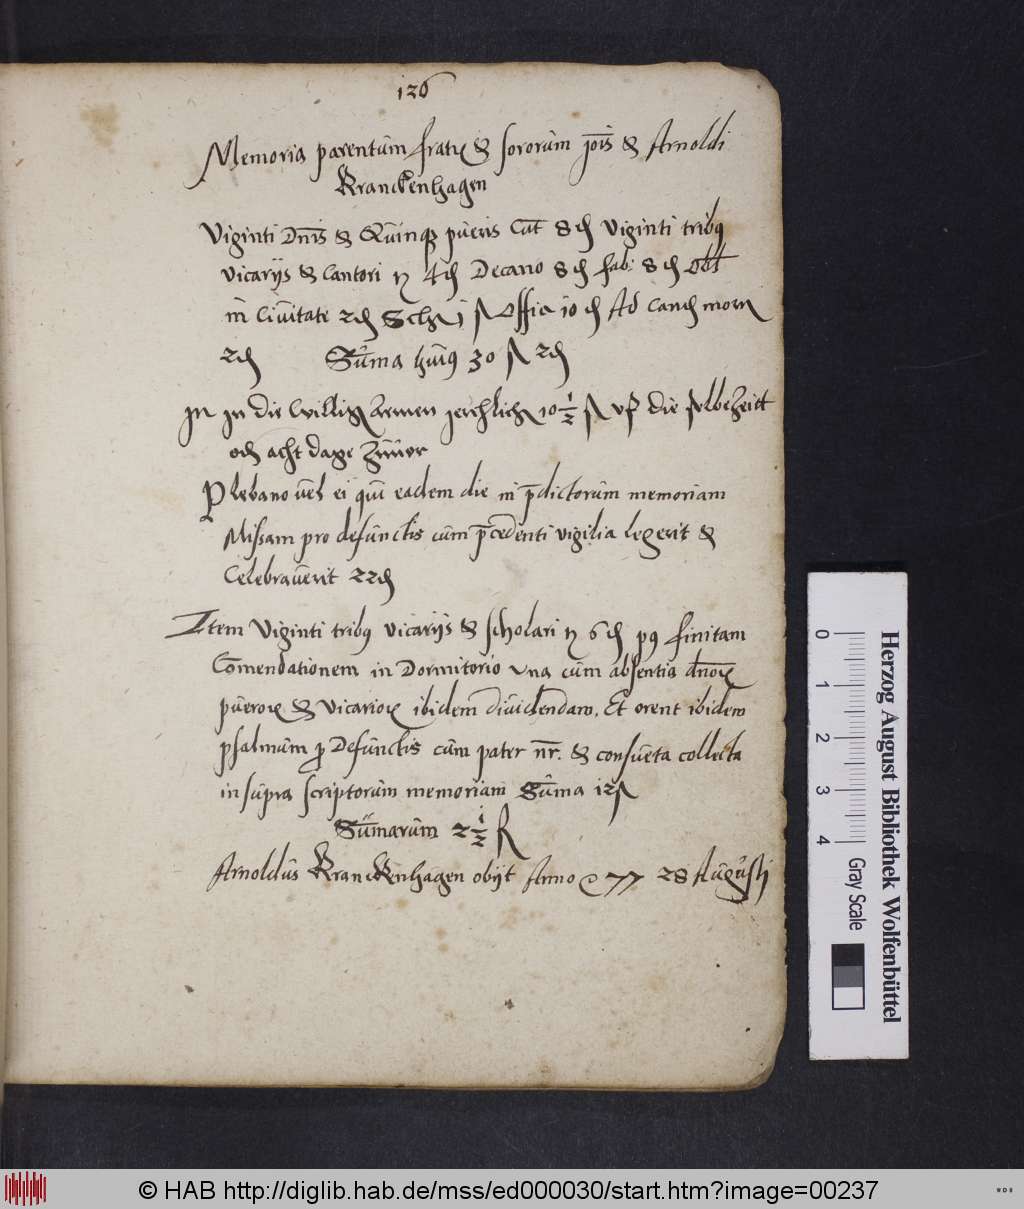 126
Memoria parentum fratrũ & sororum jois & Arnoldi
Kranckenhagen
Viginti Dnis & Quinq pueris Cat 8 d Viginti tribq
vicarijs & Cantori 4 d Decano 8 d fab: 8 d
in Ciuitate 2 d Sch offici 10 d Ad Cand
2 d Suma huiq 30 2 d
In die Willig Armen jerchlich 10 1/2 vp die selbe Zeitt
och acht dage Zuuor
Plebano vel ei qui eadem die in pdictorum memoriam
Missam pro defunctis cum pcedenti vigilia legerit &
Celebrauerit 22 d
Item Viginti tribq vicarijs & scholari 6 d pq finitam
Comendationem in Dormitorio una cum absentia dnor
pueror & vicarior ibidem diuidendam. Et orent ibidem
psalmum p Defunctis cum pater nr. & consueta collecta
in supra scriptorum memoriam Suma 12
Sumarum 2 1/2 R
Arnoldus Kranckenhagen obijt Anno 77 28 Augusti
Herzog August Bibliothek Wolfenbüttel
0 1 2 3 4 Gray Scale
© HAB http://diglib.hab.de/mss/ed000030/start.htm?image=00237